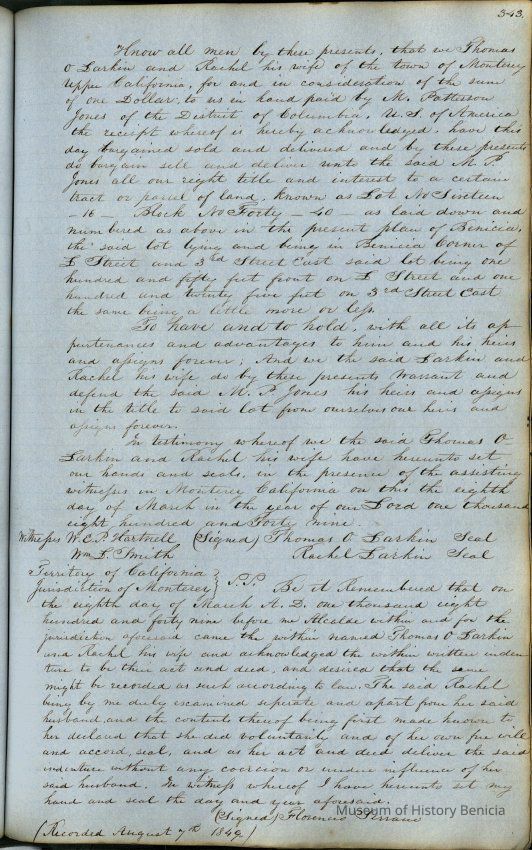 343
Know all men by these presents, that we Thomas
O Larkin and Rachel his wife of the town of Monterey
Upper California, for and in consideration of the sum
of one Dollar, to us in hand paid by M. Patterson
Jones of the District of Columbia, U.S. of America
the receipt whereof is hereby acknowledged, have this
day bargained sold and delivered and by these presents
do bargain sell and deliver unto the said M. P.
Jones all our right title and interest to a certain
tract or parcel of land, known as Lot No Sixteen
- 16 - Block No Forty - 40 - as laid down and
numbered as above in the present plan of Benicia,
the said lot lying and being in Benicia Corner of
L Street and 3rd Street East said lot being one
hundred and fifty feet front on L Street and one
hundred and twenty five feet on 3rd Street East
the same being a little more or less.
To have and to hold, with all its ap
purtenances and advantages to him and his heirs
and assigns forever; And we the said Larkin and
Rachel his wife do by these presents Warrant and
defend the said M. P. Jones his heirs and assigns
in the title to said lot from ourselves our heirs and
assigns forever.
In testimony whereof we the said Thomas O
Larkin and Rachel his wife have hereunto set
our hands and seals, in the presence of the assisting
witnesses in Monterey California on this the eighth
day of March in the year of our Lord one thousand
eight hundred and Forty nine.
Witnesses W. E. P. Hartnell (Signed) Thomas O Larkin Seal
Wm. F. Smith Rachel Larkin Seal
Territory of California
Jurisdiction of Monterey } S.S. Be it Remembered that on
the eighth day of March A. D. one thousand eight
hundred and forty nine before me Alcalde within and for the
jurisdiction aforesaid came the within named Thomas O Larkin
and Rachel his wife and acknowledged the within written inden
ture to be their act and deed, and desired that the same
might be recorded as such according to law. The said Rachel
being by me duly examined seperate and apart from her said
husband, and the contents thereof being first made known to
her declared that she did voluntarily and of her own free will
and accord, seal, and as her act and deed deliver the said
indenture without any coercion or undue influence of her
said husband. In witness whereof I have hereunto set my
hand and seal the day and year aforesaid.
(Signed) Florencio Serrano
(Recorded August 7th 1849)
Museum of History Benicia